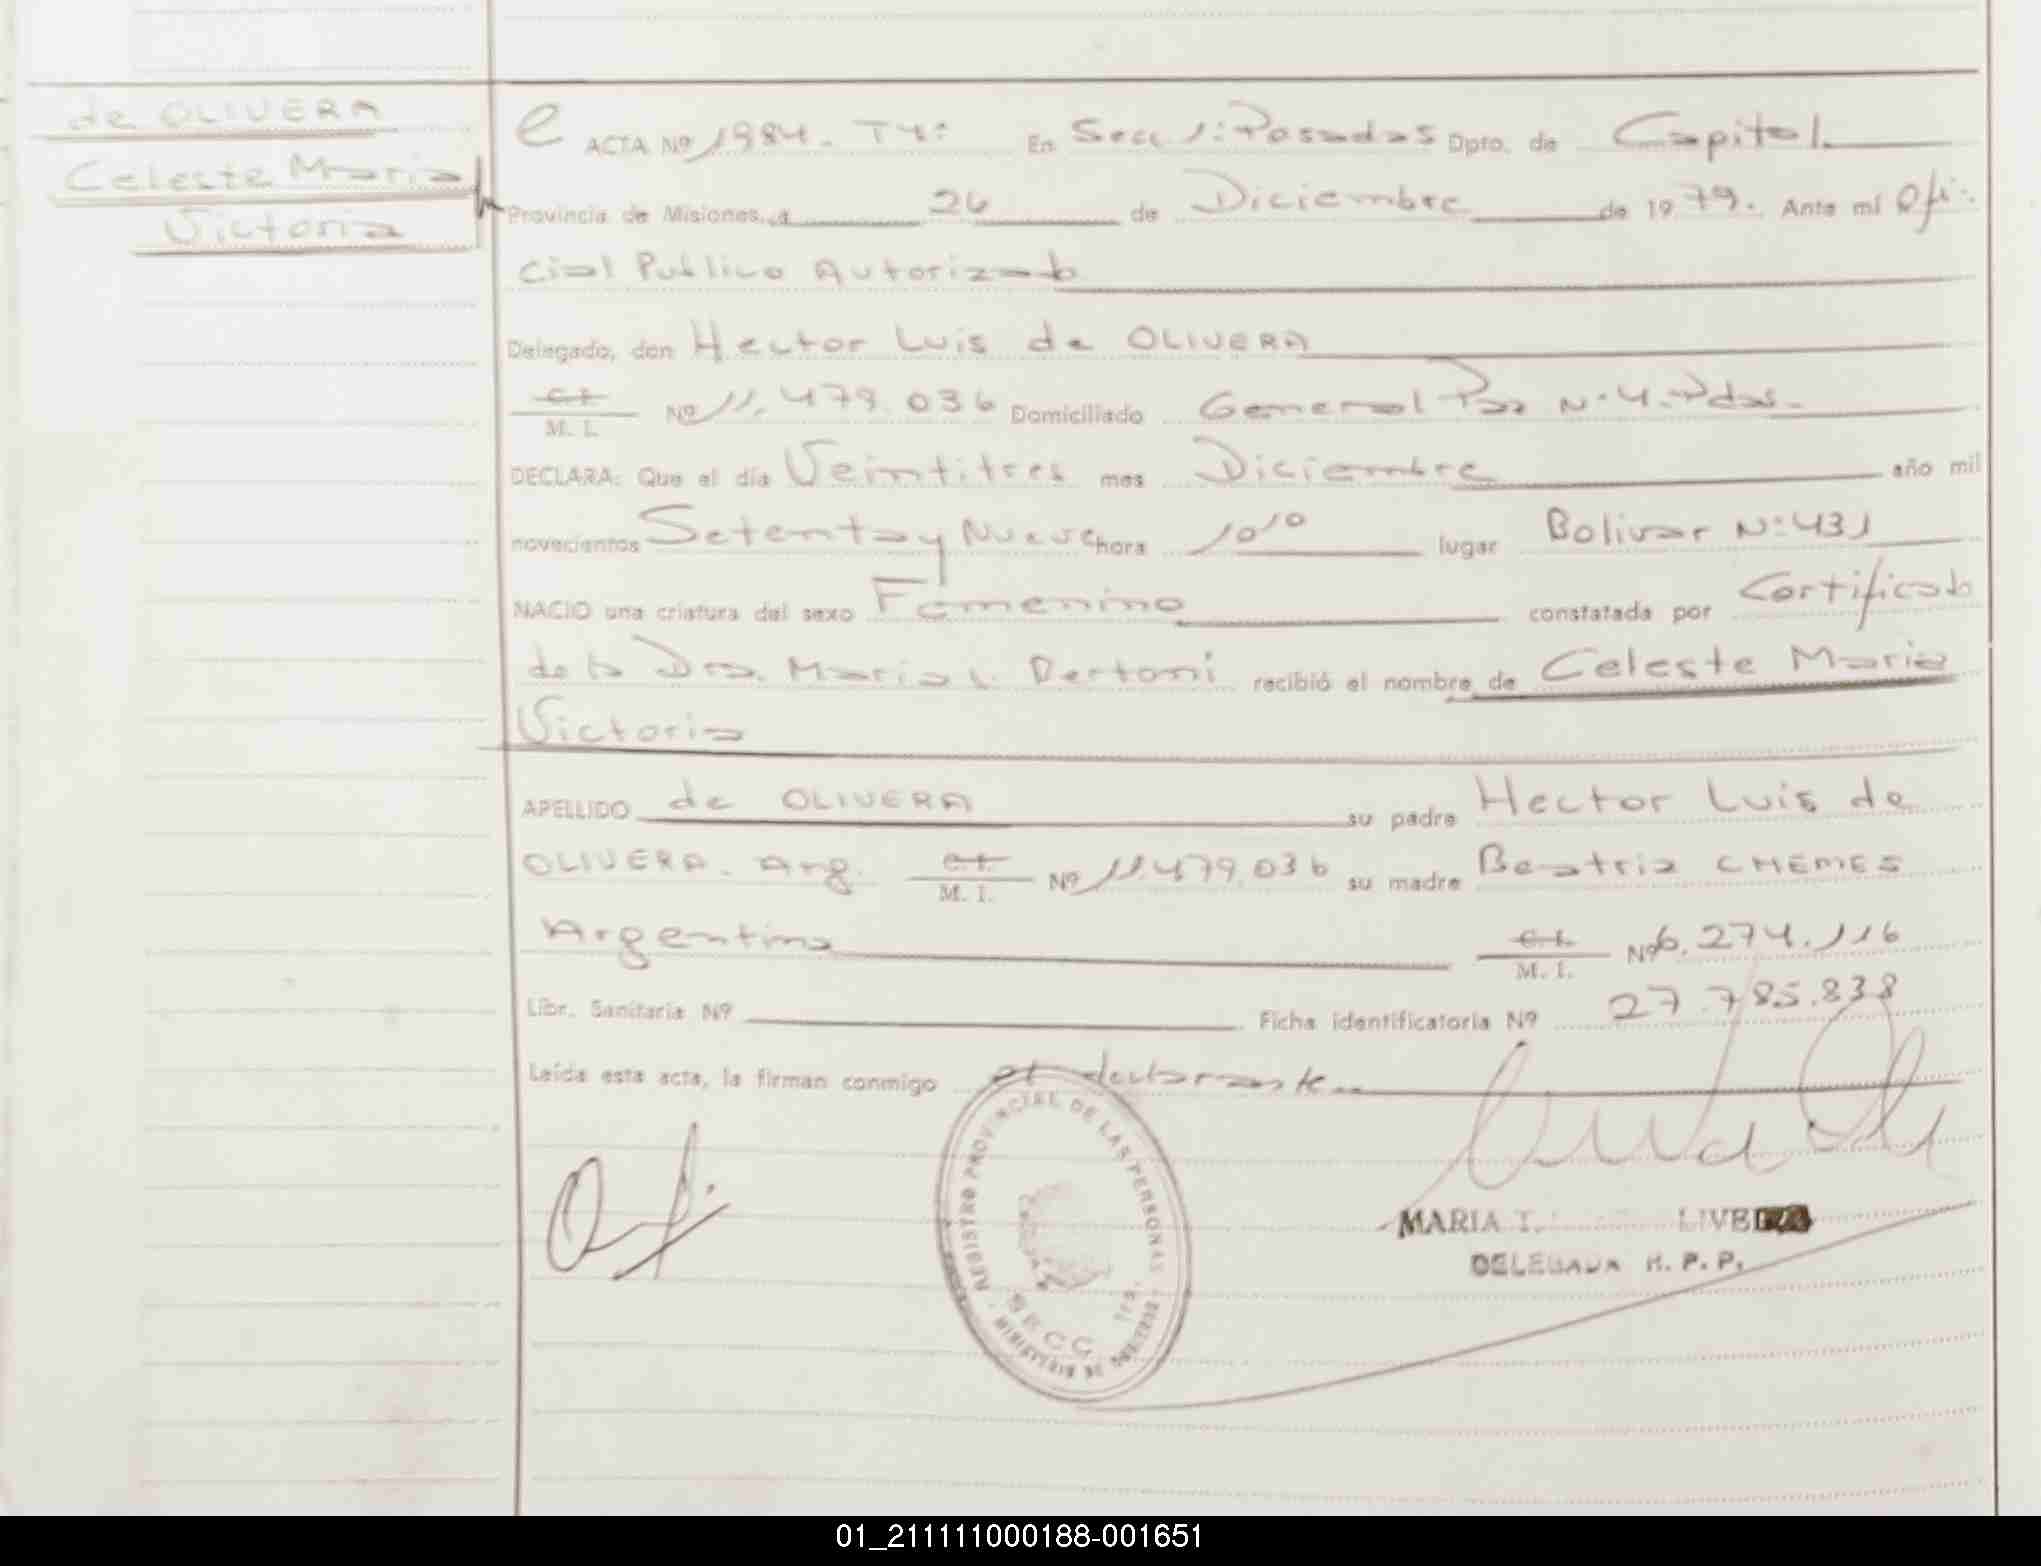 de OLIVERA
Celeste Maria
Victoria
e ACTA Nº 1984. Tº4º En Secc 1º Posadas Dpto. de Capital
Provincia de Misiones, a 26 de Diciembre de 1979. Ante mí Ofi-
cial Publico Autorizado
Delegado, don Hector Luis de OLIVERA
C.I. M. I. Nº 11.479.036 Domiciliado General Paz Nº 4. Pdas.
DECLARA: Que el día Veintitres mes Diciembre año mil
novecientos Setenta y Nueve hora 10¹⁰ lugar Bolivar Nº 431
NACIO una criatura del sexo Femenino constatada por Certificado
de la Dra. Maria L. Bertoni recibió el nombre de Celeste Maria
Victoria
APELLIDO de OLIVERA su padre Hector Luis de
OLIVERA. Arg. C.I. M. I. Nº 11.479.036 su madre Beatriz CHEMES
Argentina C.I. M. I. Nº 6.274.116
Libr. Sanitaria Nº Ficha identificatoria Nº 27.785.838
Leída esta acta, la firman conmigo el declarante
REGISTRO PROVINCIAL DE LAS PERSONAS
SECC. 1ra.
MINISTERIO DE
MARIA T.
DELEGADA R. P. P.
01_211111000188-001651